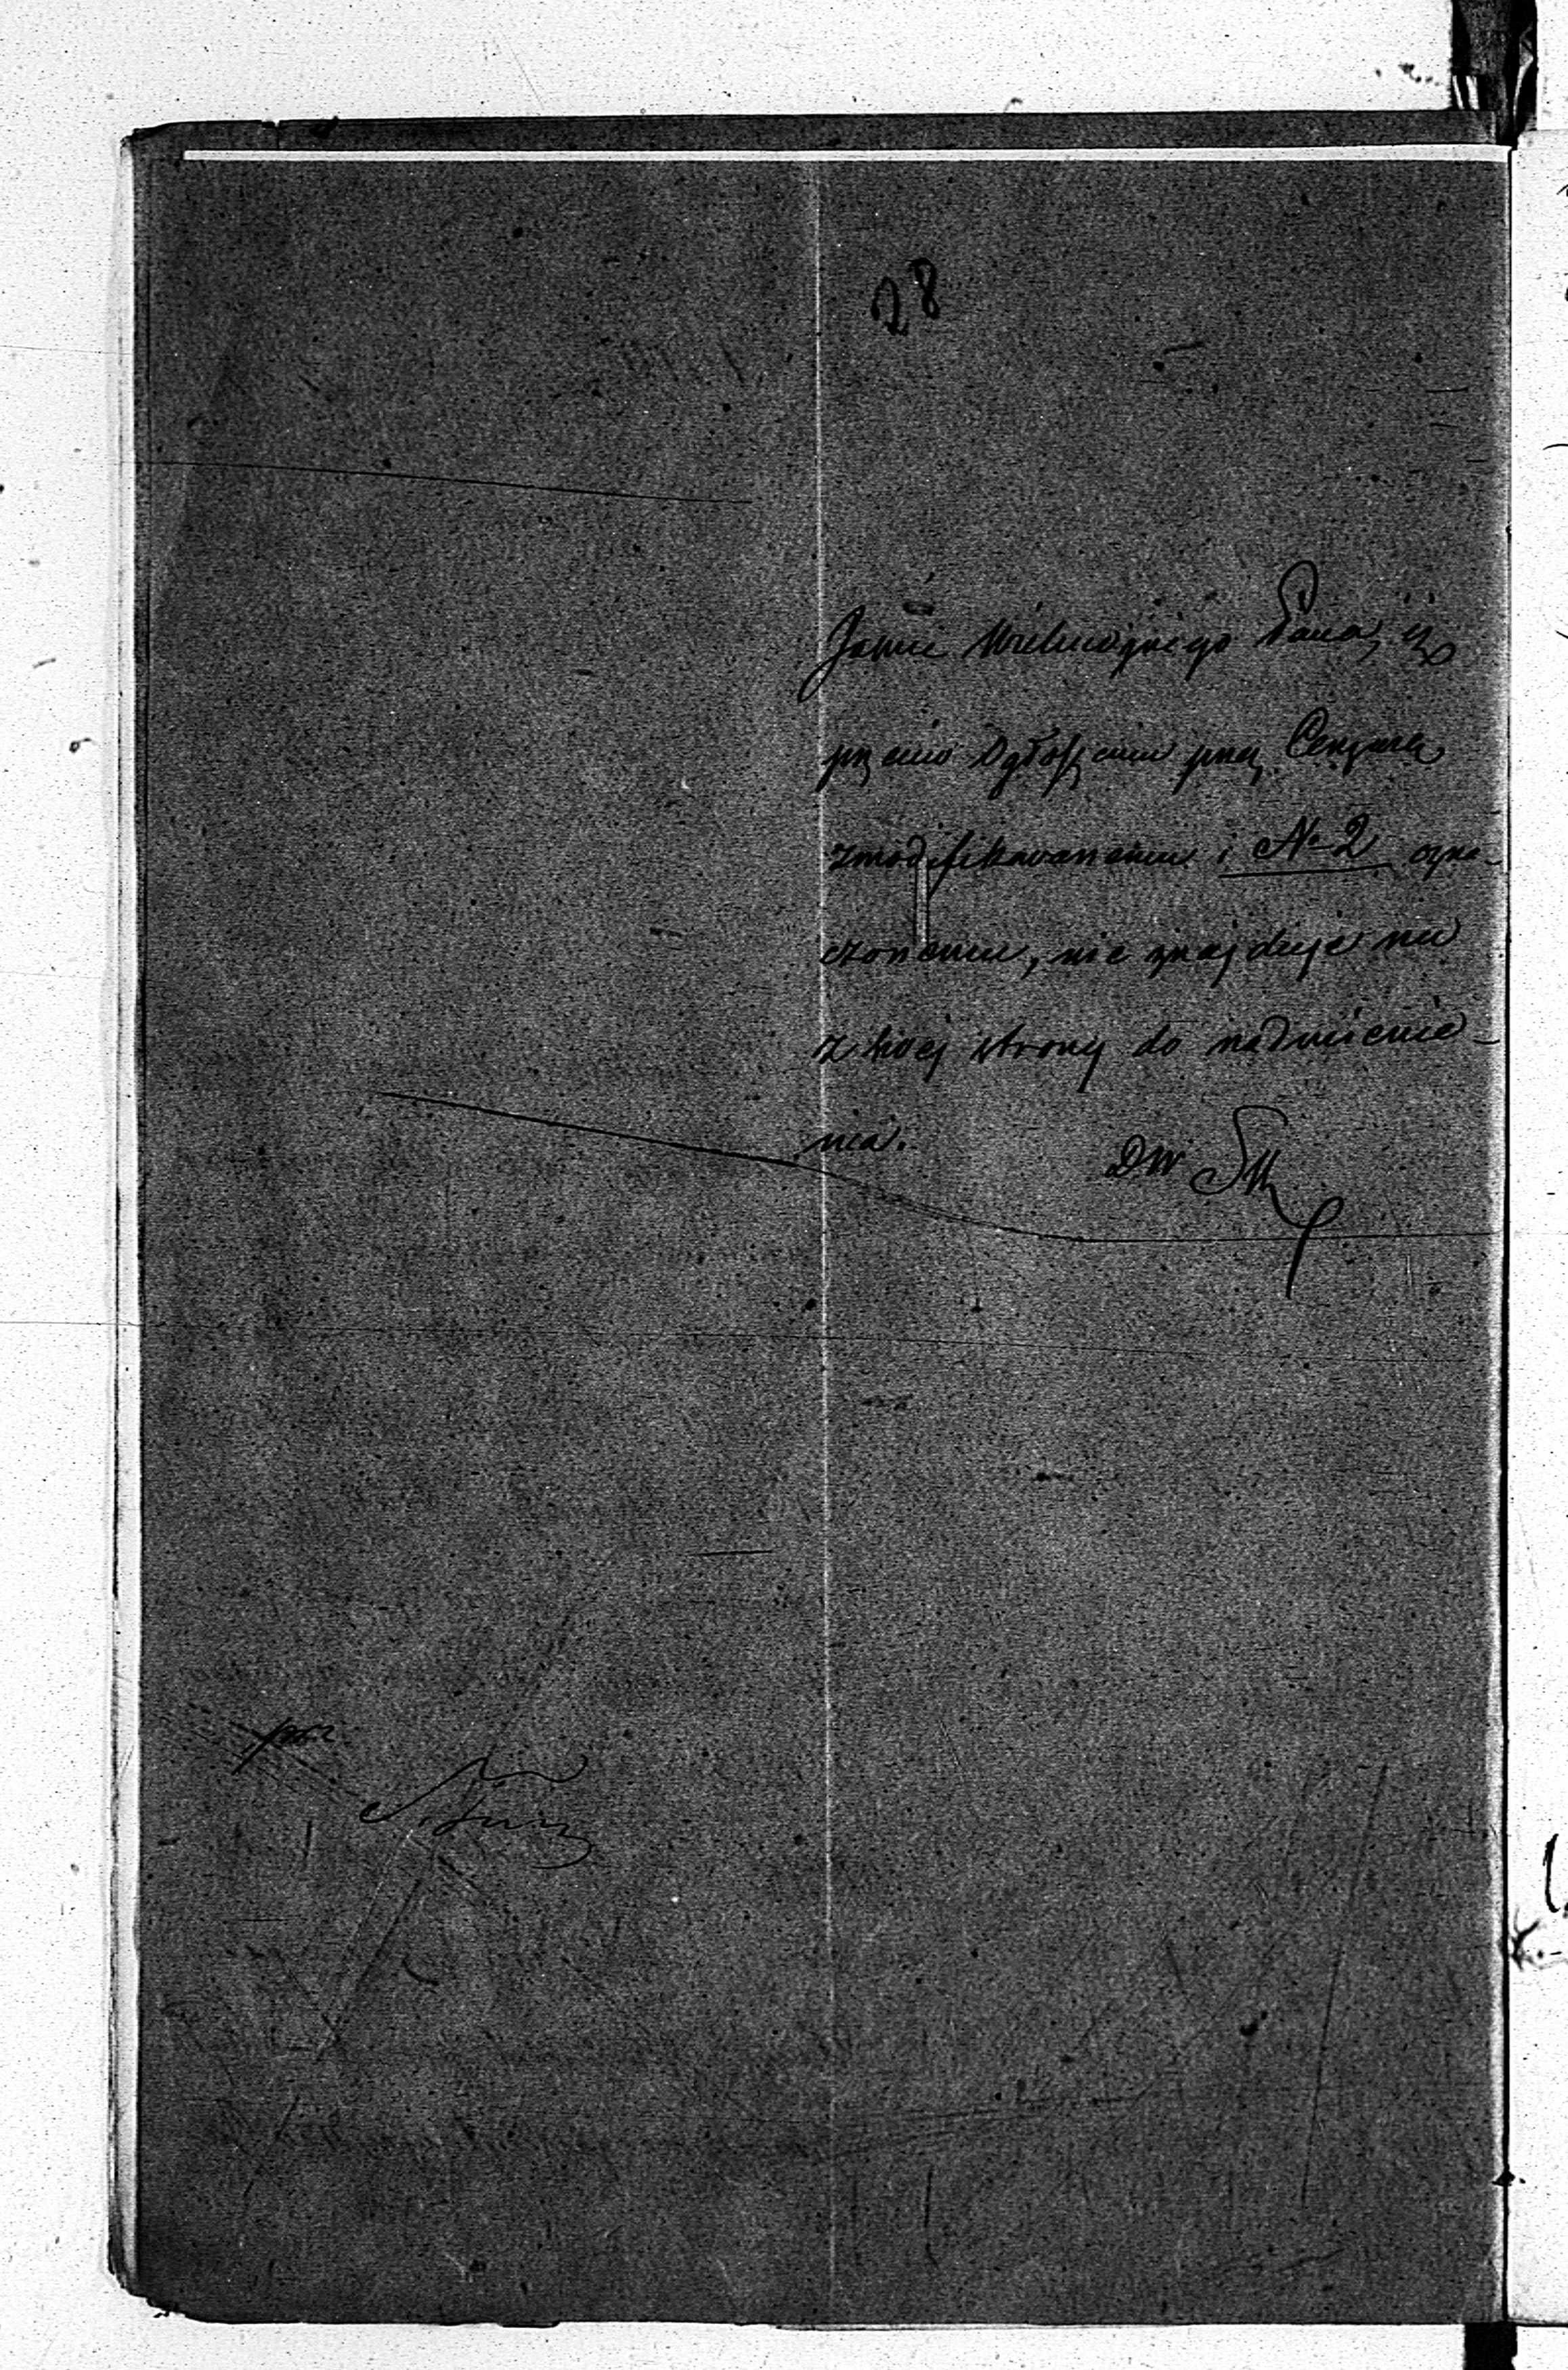 28
Jaśnie Wielmożnego Pana, czy
przeciw Ogłoszeniu przez Cenzurę
zmodyfikowanemu i No 2 ozna-
czonemu, nie znajduje nic
z swej strony do nadmienie-
nia.
DW